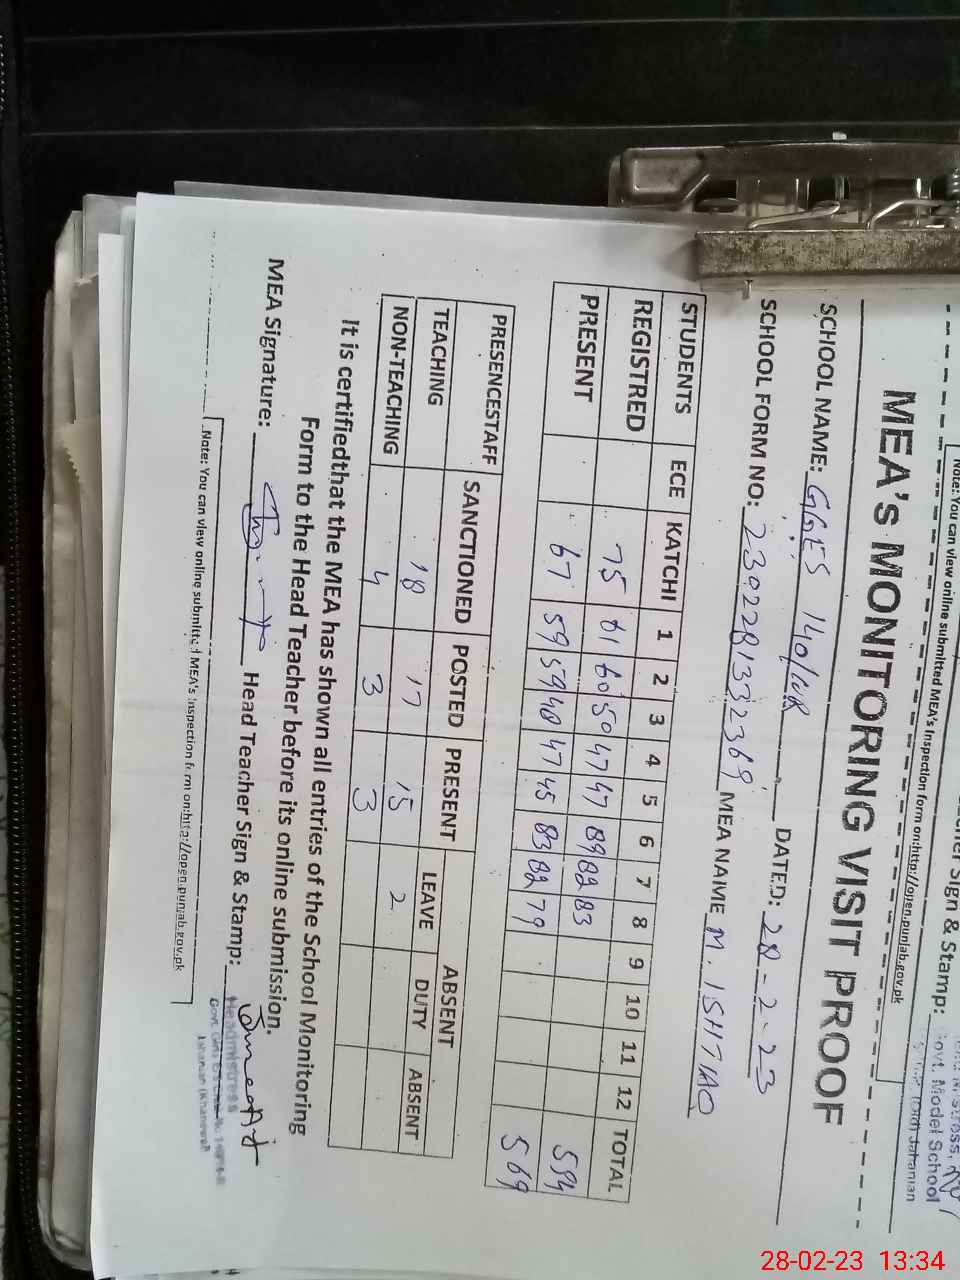 Note: You can view online submitted MEA's Inspection form on:http://open.punjab.gov.pk
Sign & Stamp:
Govt. Model School
Jahanian
MEA's MONITORING VISIT PROOF
SCHOOL NAME: GGES 140/10R DATED: 28-2-23
SCHOOL FORM NO: 2302281332369 MEA NAME M. ISHTIAQ
STUDENTS ECE KATCHI 1 2 3 4 5 6 7 8 9 10 11 12 TOTAL
REGISTRED 75 61 60 50 47 47 89 82 83 594
PRESENT 67 59 59 48 47 45 83 82 79 569
PRESENCESTAFF SANCTIONED POSTED PRESENT ABSENT
LEAVE DUTY ABSENT
TEACHING 18 17 15 2
NON-TEACHING 4 3 3
It is certifiedthat the MEA has shown all entries of the School Monitoring
Form to the Head Teacher before its online submission.
MEA Signature: Head Teacher Sign & Stamp:
Headmistress
Jahanian (Khanewal)
Note: You can view online submitted MEA's Inspection form on:http://open.punjab.gov.pk
28-02-23 13:34